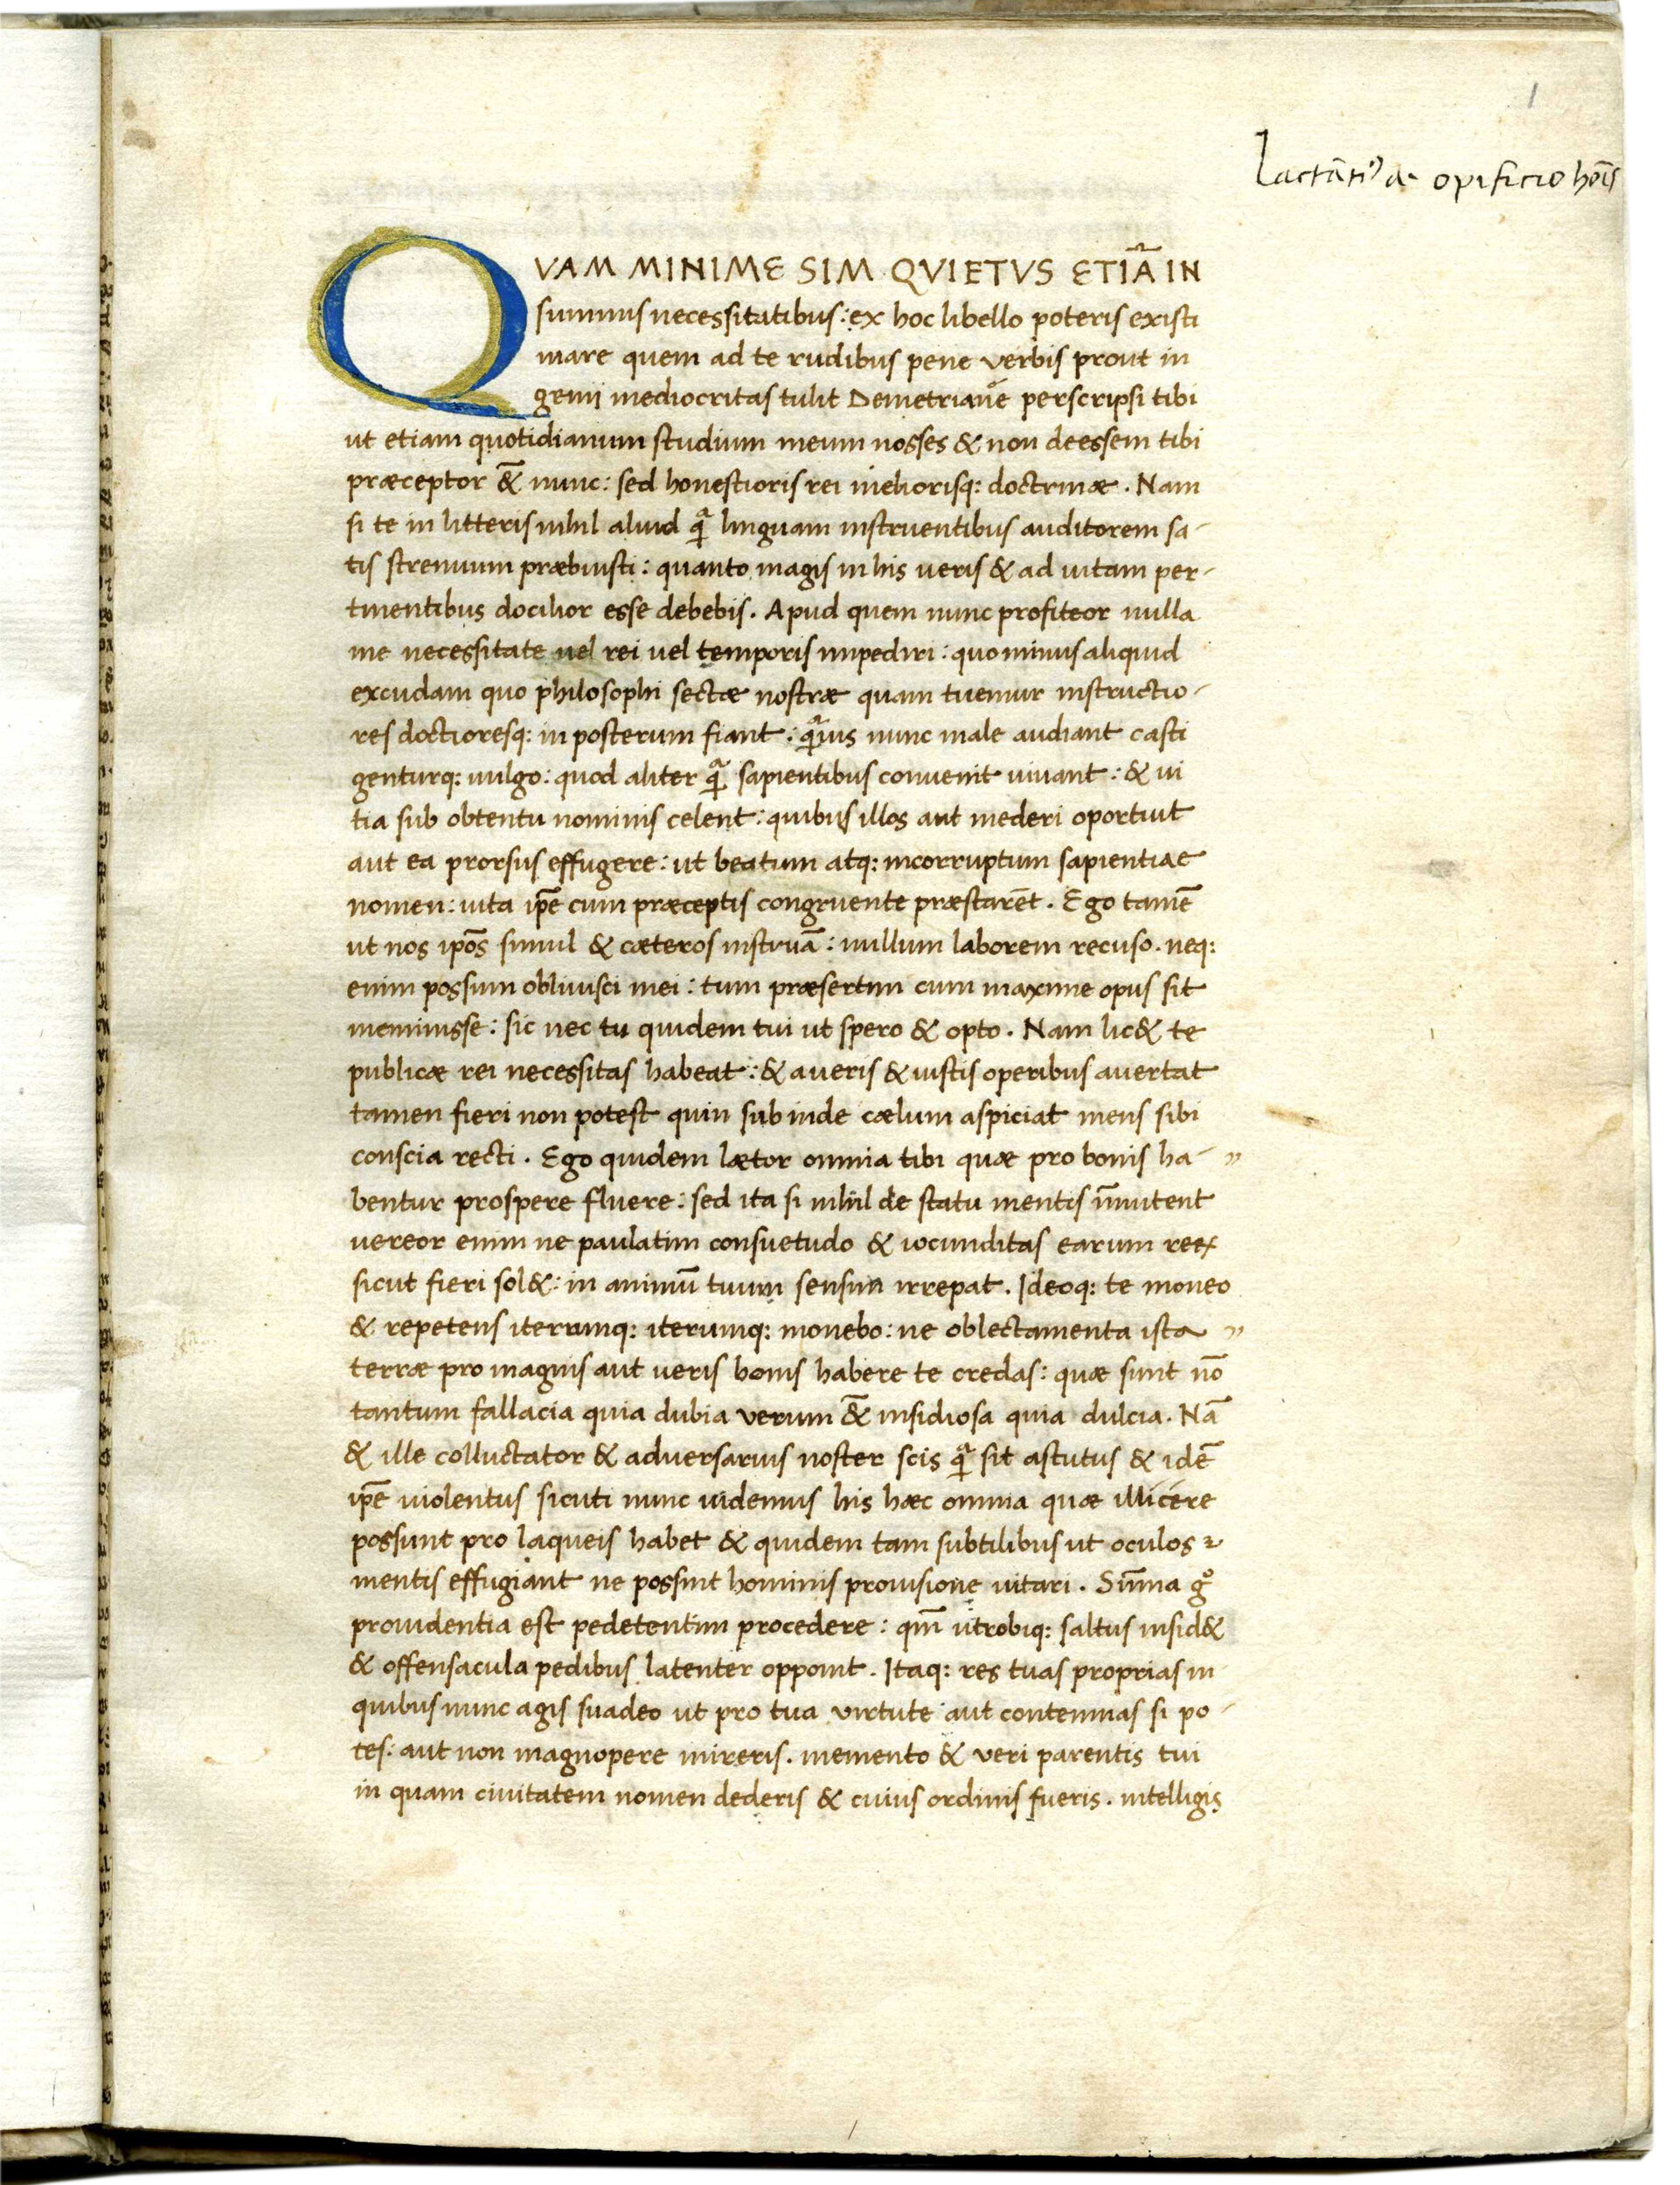 1
Lactāti9 d. opificio hoīs
QVAM MINIME SIM QVIETVS ETIĀ IN
summis necessitatibus: ex hoc libello poteris existi
mare quem ad te rudibus pene verbis prout in
genii mediocritas tulit Demetriane perscripsi tibi
ut etiam quotidianum studium meum nosses & non deessem tibi
præceptor &̄ nunc: sed honestioris rei meliorisq: doctrinæ. Nam
si te in litteris nihil aliud qᷓ linguam instruentibus auditorem sa-
tis strenuum præbuisti: quanto magis in his ueris & ad uitam per-
tinentibus docilior esse debebis. Apud quem nunc profiteor nulla
me necessitate uel rei uel temporis impediri: quominus aliquid
excudam quo philosophi sectæ nostræ quam tuemur instructio-
res doctioresq: in posterum fiant. qᷓuis nunc male audiant casti
genturq: uulgo: quod aliter qᷓ sapientibus conuenit uiuant: & ui
tia sub obtentu nominis celent: quibus illos aut mederi oportuit
aut ea prorsus effugere: ut beatum atq: incorruptum sapientiae
nomen: uita ip̄e cum præceptis congruente præstarēt. Ego tamē
ut nos ip̄os simul & cæteros instruā: nullum laborem recuso. neq:
enim possum obliuisci mei: tum præsertim cum maxime opus sit
meminisse: sic nec tu quidem tui ut spero & opto. Nam lic& te
publicæ rei necessitas habeat: & a ueris & iustis operibus auertat
tamen fieri non potest quin subinde cælum aspiciat mens sibi
conscia recti. Ego quidem lætor omnia tibi quæ pro bonis ha- "
bentur prospere fluere: sed ita si nihil de statu mentis īmutent
uereor enim ne paulatim consuetudo & iocunditas earum reꝝ
sicut fieri sol&: in animū tuum sensim irrepat. Ideoq: te moneo
& repetens iterumq: iterumq: monebo: ne oblectamenta ista "
terræ pro magnis aut ueris bonis habere te credas: quæ sunt nō
tantum fallacia quia dubia verum &̄ insidiosa quia dulcia. Nā
& ille colluctator & aduersarius noster scis qᷓ sit astutus & idē
ip̄e uiolentus sicuti nunc uidemus his hæc omnia quæ illicere
possunt pro laqueis habet & quidem tam subtilibus ut oculos
mentis effugiant ne possint hominis prouisione uitari. Sūma gͦ
prouidentia est pedetentim procedere: qm̄ utrobiq: saltus insid&
& offensacula pedibus latenter opponit. Itaq: res tuas proprias in
quibus nunc agis suadeo ut pro tua virtute aut contemnas si po-
tes: aut non magnopere mireris. memento & veri parentis tui
in quam ciuitatem nomen dederis & cuius ordinis fueris. intelligis